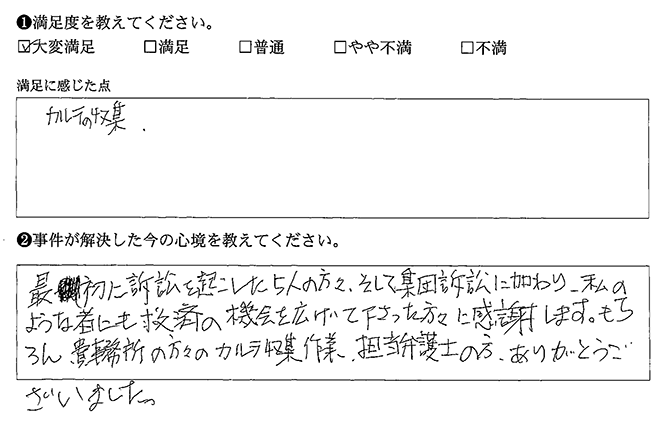 ❶満足度を教えてください。
☑大変満足 □満足 □普通 □やや不満 □不満
満足に感じた点
カルテの収集.
❷事件が解決した今の心境を教えてください。
最初に訴訟を起こした5人の方々、そして集団訴訟に加わり、私の
ような者にも救済の機会を広げて下さった方々に感謝します。もち
ろん貴事務所の方々のカルテ収集作業、担当弁護士の方、ありがとうご
ざいました。